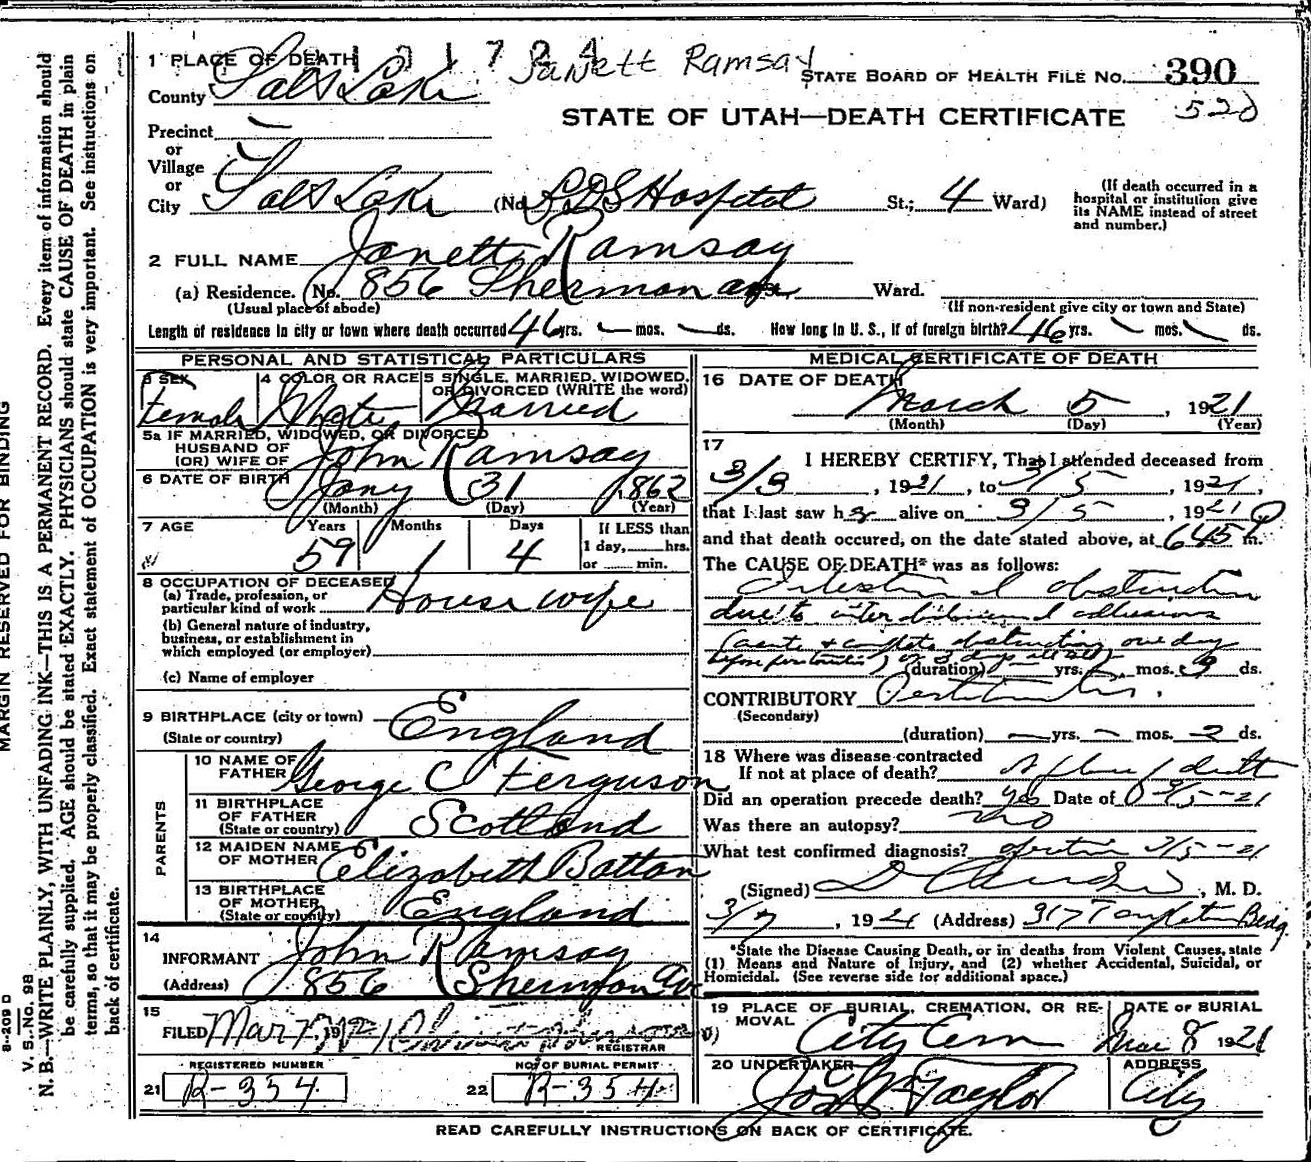 1 PLACE OF DEATH
Janett Ramsay
STATE BOARD OF HEALTH FILE NO. 390
County Salt Lake
STATE OF UTAH—DEATH CERTIFICATE 520
Precinct
or
Village
or
City Salt Lake (No. L.D.S Hospital St.; 4 Ward)
(If death occurred in a hospital or institution give its NAME instead of street and number.)
2 FULL NAME Janett Ramsay
(a) Residence. No. 856 Sherman ave Ward.
(Usual place of abode) (If non-resident give city or town and State)
Length of residence in city or town where death occurred 46 yrs. — mos. — ds. How long in U. S., if of foreign birth? 46 yrs. mos. ds.
PERSONAL AND STATISTICAL PARTICULARS
3 SEX Female
4 COLOR OR RACE White
5 SINGLE, MARRIED, WIDOWED, OR DIVORCED (WRITE the word) Married
5a IF MARRIED, WIDOWED, OR DIVORCED
HUSBAND OF
(OR) WIFE OF John Ramsay
6 DATE OF BIRTH Jany 31 1862
(Month) (Day) (Year)
7 AGE Years Months Days If LESS than
59 1 4 1 day, hrs.
or min.
8 OCCUPATION OF DECEASED
(a) Trade, profession, or
particular kind of work House wife
(b) General nature of industry,
business, or establishment in
which employed (or employer)
(c) Name of employer
9 BIRTHPLACE (city or town)
(State or country) England
PARENTS
10 NAME OF FATHER George C Ferguson
11 BIRTHPLACE OF FATHER (State or country) Scotland
12 MAIDEN NAME OF MOTHER Elizabeth Batton
13 BIRTHPLACE OF MOTHER (State or country) England
14
INFORMANT John Ramsay
(Address) 856 Sherman Av
15
FILED Mar 7 1921
REGISTRAR
REGISTERED NUMBER
21 R-354
NO. OF BURIAL PERMIT
22 R-354
MEDICAL CERTIFICATE OF DEATH
16 DATE OF DEATH
March 5, 1921
(Month) (Day) (Year)
17
I HEREBY CERTIFY, That I attended deceased from
3/3, 1921, to 3/5, 1921,
that I last saw her alive on 3/5, 1921
and that death occured, on the date stated above, at 645 P m.
The CAUSE OF DEATH* was as follows:
Intestinal obstruction
due to inter abdominal adhesions
(acute & complete obstruction one day
before
(duration) yrs. mos. 3 ds.
CONTRIBUTORY Peritonitis.
(Secondary)
(duration) — yrs. — mos. 2 ds.
18 Where was disease contracted
If not at place of death? At place of death
Did an operation precede death? yes Date of 3/5-21
Was there an autopsy? no
What test confirmed diagnosis? operation 3/5-21
(Signed), M. D.
3/7, 1921 (Address) 317 Templeton Bldg.
*State the Disease Causing Death, or in deaths from Violent Causes, state
(1) Means and Nature of Injury, and (2) whether Accidental, Suicidal, or
Homicidal. (See reverse side for additional space.)
19 PLACE OF BURIAL, CREMATION, OR RE-
MOVAL City Cem
DATE OF BURIAL
Mar 8 1921
20 UNDERTAKER Jos Wm Taylor
ADDRESS City
READ CAREFULLY INSTRUCTIONS ON BACK OF CERTIFICATE.
MARGIN RESERVED FOR BINDING
V. S. No. 98
N. B.—WRITE PLAINLY, WITH UNFADING INK—THIS IS A PERMANENT RECORD. Every item of information should
be carefully supplied. AGE should be stated EXACTLY. PHYSICIANS should state CAUSE OF DEATH in plain
terms, so that it may be properly classified. Exact statement of OCCUPATION is very important. See instructions on
back of certificate.